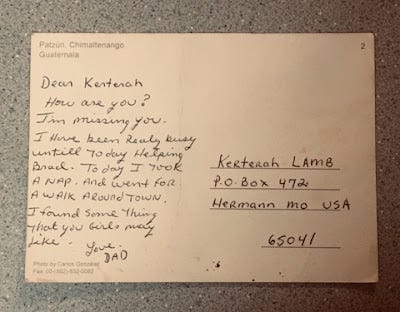 Patzún, Chimaltenango
Guatemala
2
Dear Kerterah
How are you?
I'm missing you.
I Have been Realy busy
untill Today Helping
Brad. Today I TOOK
A NAP. And went for
A WALK AROUND TOWN.
I found Some Thing
That you Girls may
Like.
Love
DAD
Kerterah LAMB
P.O. Box 472
Hermann mo USA
65041
Photo by Carlos González
Fax: 00-(502)-832-0082